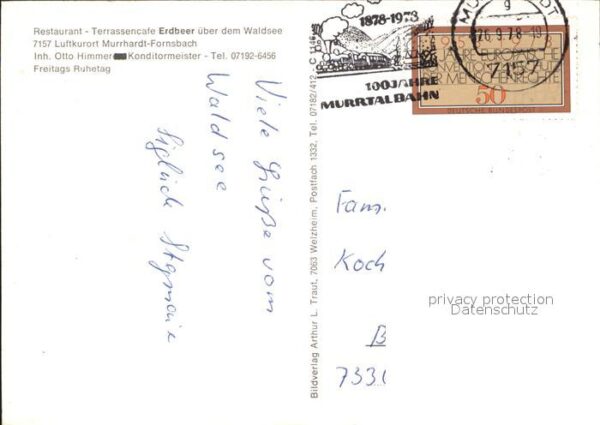 Restaurant - Terrassencafe Erdbeer über dem Waldsee
7157 Luftkurort Murrhardt-Fornsbach
Inh. Otto Himmer Konditormeister - Tel. 07192-6456
Freitags Ruhetag
Viele Grüße vom
Waldsee
Bildverlag Arthur L. Traut, 7063 Welzheim, Postfach 1332, Tel. 07182/412 - C 1166
1878-1978
100 JAHRE
MURRTALBAHN
26.9.78
7157
50
DEUTSCHE BUNDESPOST
Fam.
Koch
B
7331
privacy protection
Datenschutz